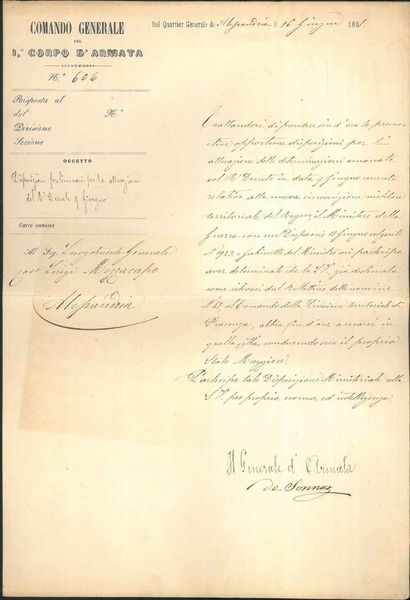 COMANDO GENERALE
DEL
1.° CORPO D'ARMATA
N.° 606
Risposta al
del N.°
Divisione
Sezione
OGGETTO
Disposizioni preliminari per la attuazione
del R.° Decreto 9 Giugno
Carte annesse
Al Sig. Luogotenente Generale
Cav. Luigi Mezzacapo
Alessandria
Dal Quartier Generale di Alessandria il 16 Giugno 1861
Trattandosi di prendere sin d'ora le preven-
tive opportune disposizioni per l'
attuazione delle determinazioni emanate
col R.° Decreto in data 9 Giugno corrente
relativo alla nuova circoscrizione militare
territoriale del Regno, il Ministro della
Guerra con suo Dispaccio 13 Giugno
N.° 1923 Gabinetto del Ministro mi partecipa
aver determinato che la S. V. già destinata
come rilevasi dal Bollettino delle nomine
al Comando della Divisione territoriale di
Piacenza, abbia fin d'ora a recarsi in
quella città conducendo seco il proprio
Stato Maggiore.
Partecipo tale Disposizione Ministeriale alla
S. V. per propria norma ed intelligenza
Il Generale d'Armata
de Sonnaz